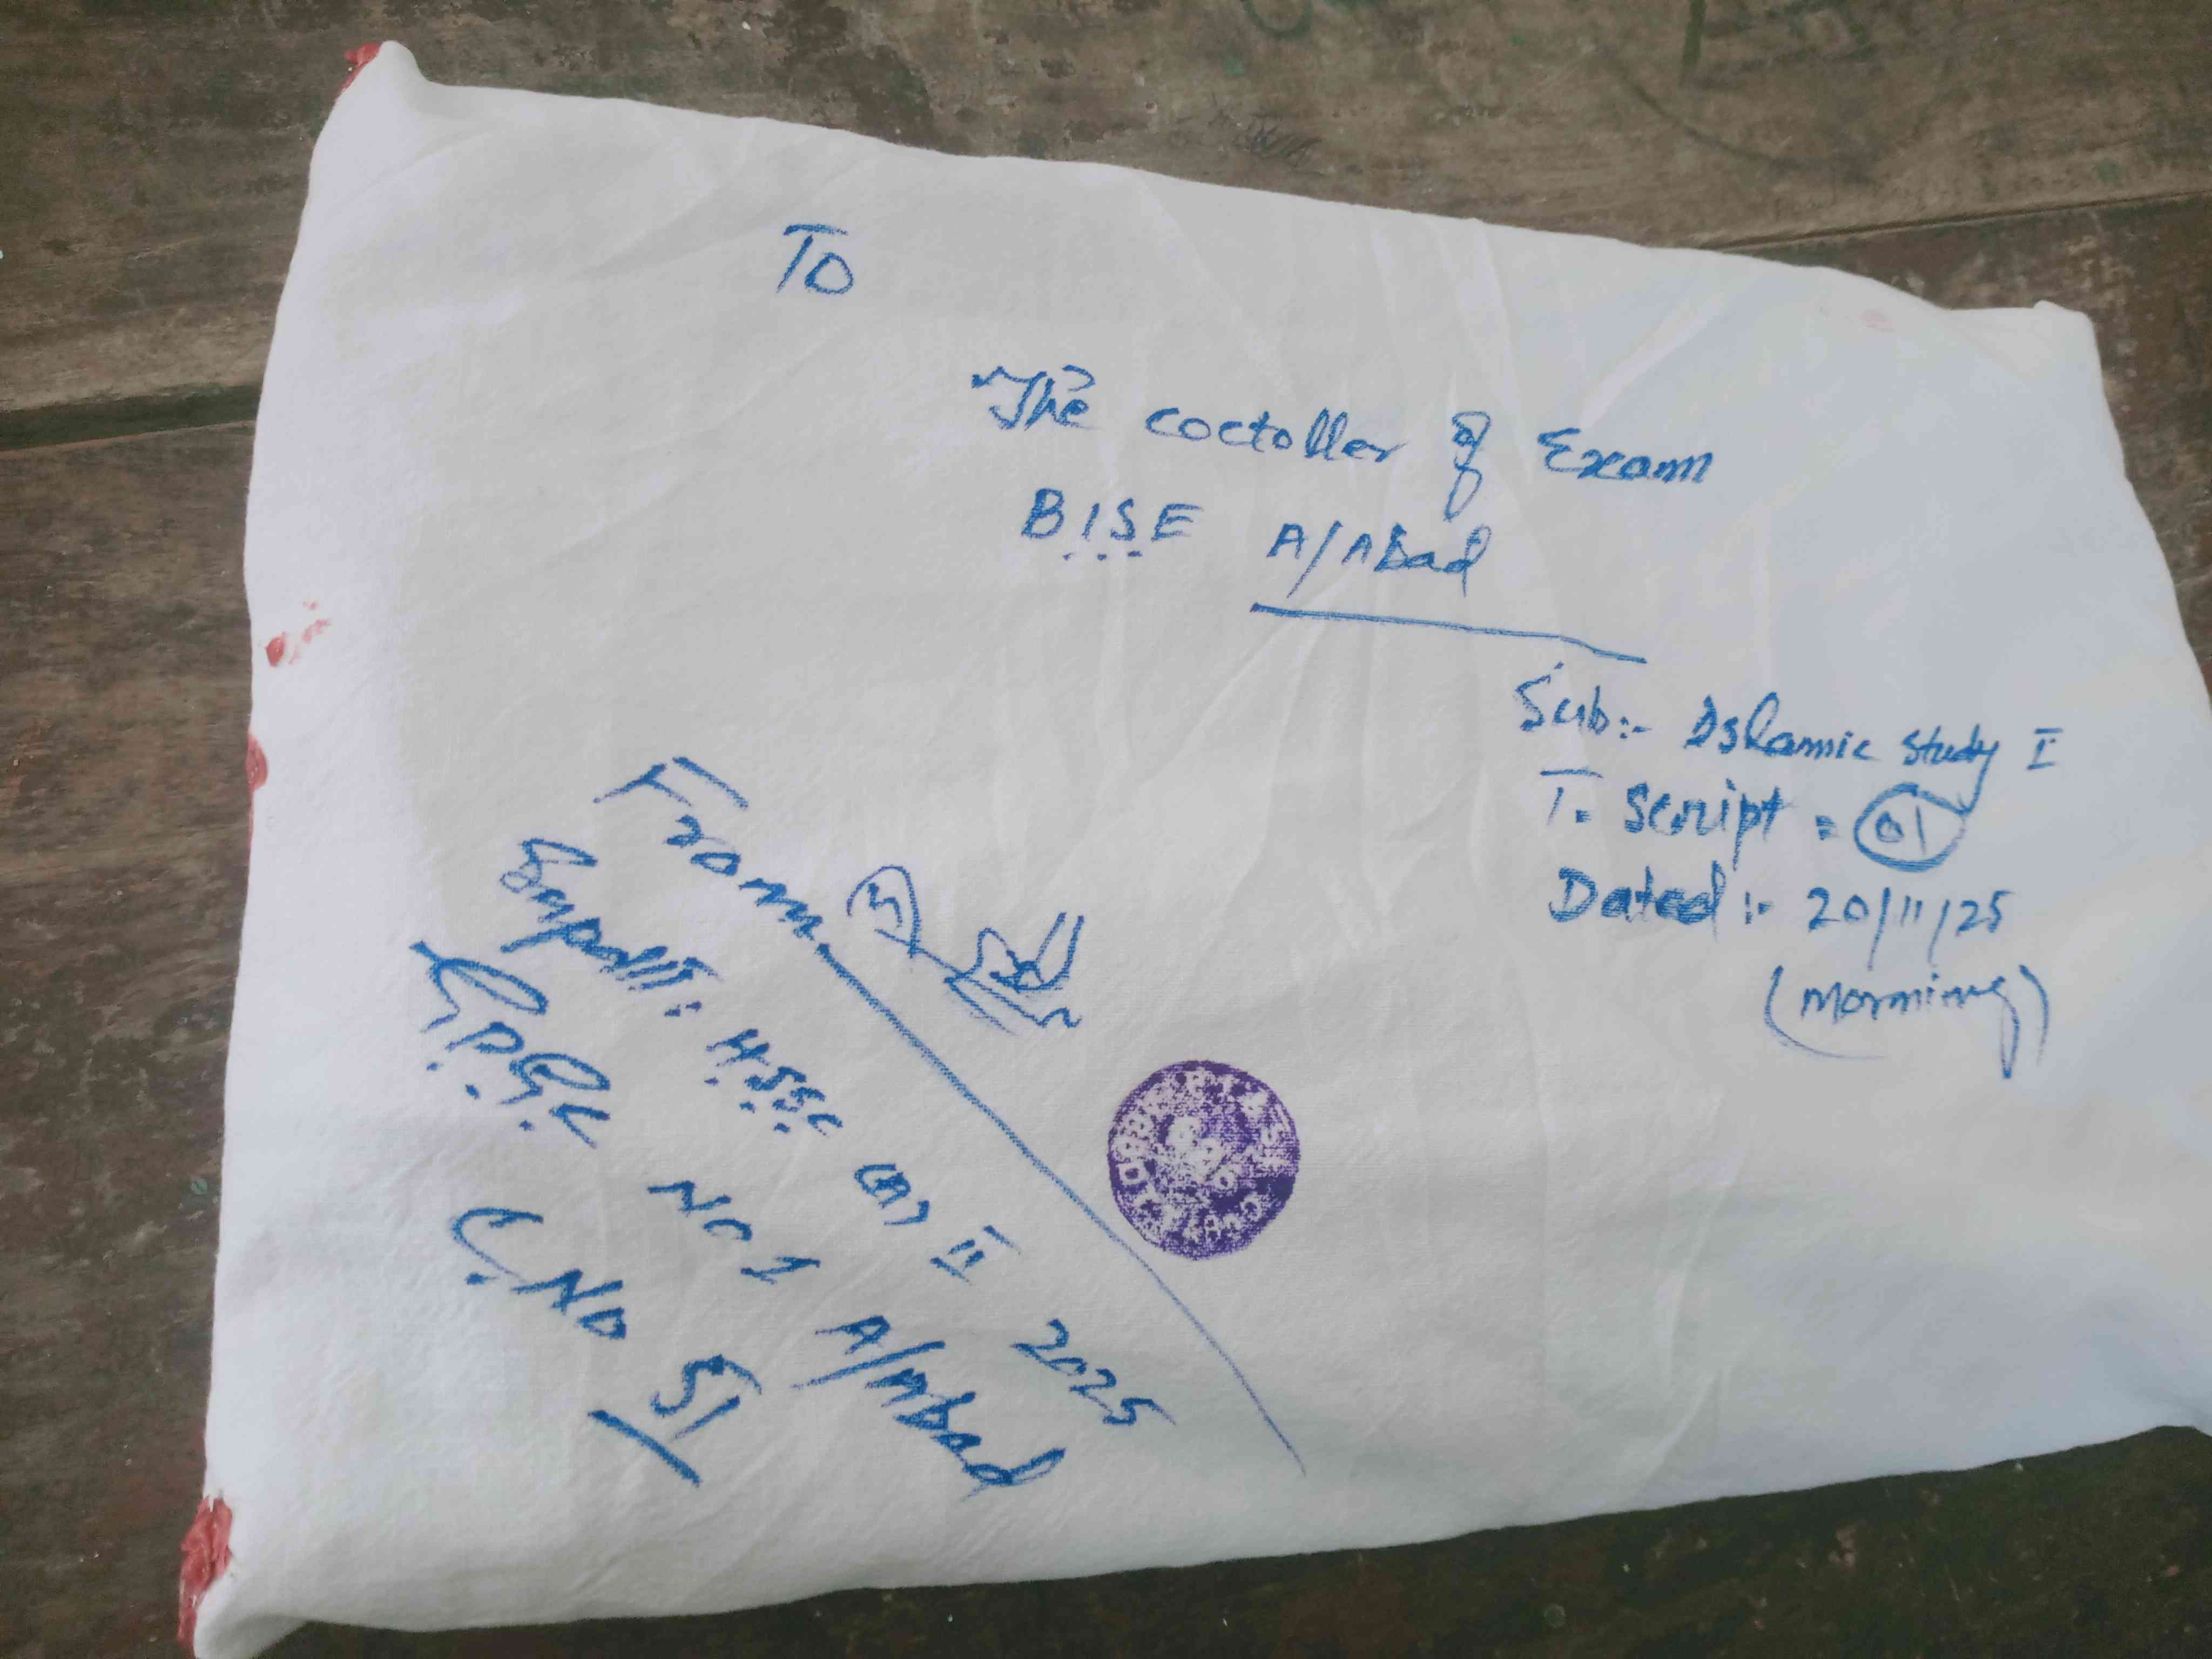 To
The coctoller of Exam
B.I.S.E A/Abad
Sub:- Islamic Study I
T. Script = 01
Dated :- 20/11/25
(Morning)
From
H.S.S.C (A) II 2025
No 1 A/Abad
C.No 51